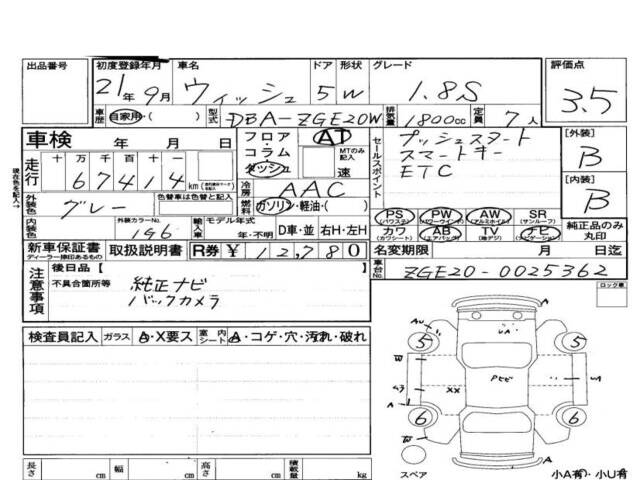 出品番号 初度登録年月 車名 ドア 形状 グレード 評価点
21年 9月 ウィッシュ 5 W 1.8S 3.5
車歴 自家用・( ) 型式 DBA-ZGE20W 排気量 1800cc 定員 7人
車検 年 月 日 フロア・コラム・ダッシュ AT MTのみ記入 速
セールスポイント プッシュスタート [外装] B
スマートキー
ETC [内装] B
現在色を記入→
走行 十 万 千 百 十 一
67414 km
冷房 AAC
外装色 グレー 色替車は色替と記入 燃料 ガソリン・軽油・( )
PS (パワステ) PW (パワーウインド) AW (アルミホイル) SR (サンルーフ)
カワ (カワシート) AB (エアバック) TV (地デジ) ナビ (ナビゲーション) 純正品のみ丸印
内装色 外装カラーNo. 196 輸入車 モデル年式 年・不明 D車・並 右H・左H
新車保証書 ディーラー捺印あるもの 取扱説明書 R券 ¥ 12,780 名変期限 月 日迄
注意事項 後日品【 】 車台No. ZGE20-0025362
不具合箇所等 純正ナビ ロック車
バックカメラ
検査員記入 ガラス A・X要ス 室内シート A・コゲ・穴・汚れ・破れ
A
AU UA
5 5
W
Pビビ
XX
A
6 6
W
A
スペア 小A有・小U有
長さ cm 幅 cm 高さ cm 積載量 kg